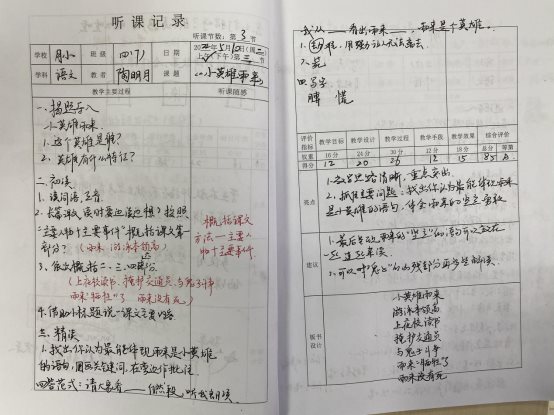 听课记录
听课节数：第 3 节
学校 月小 班级 四(7) 日期 2022年5月10日(周二)
上(下午)第三节
学科 语文 教者 陶明月 课题 《小英雄雨来》
教学主要过程 听课随感
一、揭题导入
小英雄雨来
1. 这个英雄是谁？
2. 英雄有什么特征？
二、初读
1. 读词语，正音
2. 长篇课文，读时要边读边想，按照
"主要人物+主要事件"概括课文第一
部分？(雨来游泳本领高)
概括课文
方法—主要人
物+主要事件
3. 依次概括二、三、四部分
(上夜校读书、掩护交通员、与鬼子斗争
雨来"牺牲"了 雨来没有死)
4. 借助小标题说一说课文主要内容
三、精读
1. 找出你认为最能体现雨来是小英雄
的语句，圈画关键词，在旁边作批注。
回答范式：请大家看 自然段，听我朗读。
我从 看出雨来 ，雨来是个英雄。
四、写字
脾 慌
评价指标 教学目标 教学设计 教学过程 教学手段 教学效果 综合评价
权重 16分 24分 30分 12分 18分 总分 等第
得分 12 20 26 12 15 85 A
亮点
1. 教学思路清晰，重点突出
2. 抓住主要问题：找出你认为最能体现雨来
是小英雄的语句，体会雨来的坚定勇敢
建议
板书设计
小英雄雨来
游泳本领高
上夜校读书
掩护交通员
与鬼子斗争
雨来"牺牲"了
雨来没有死